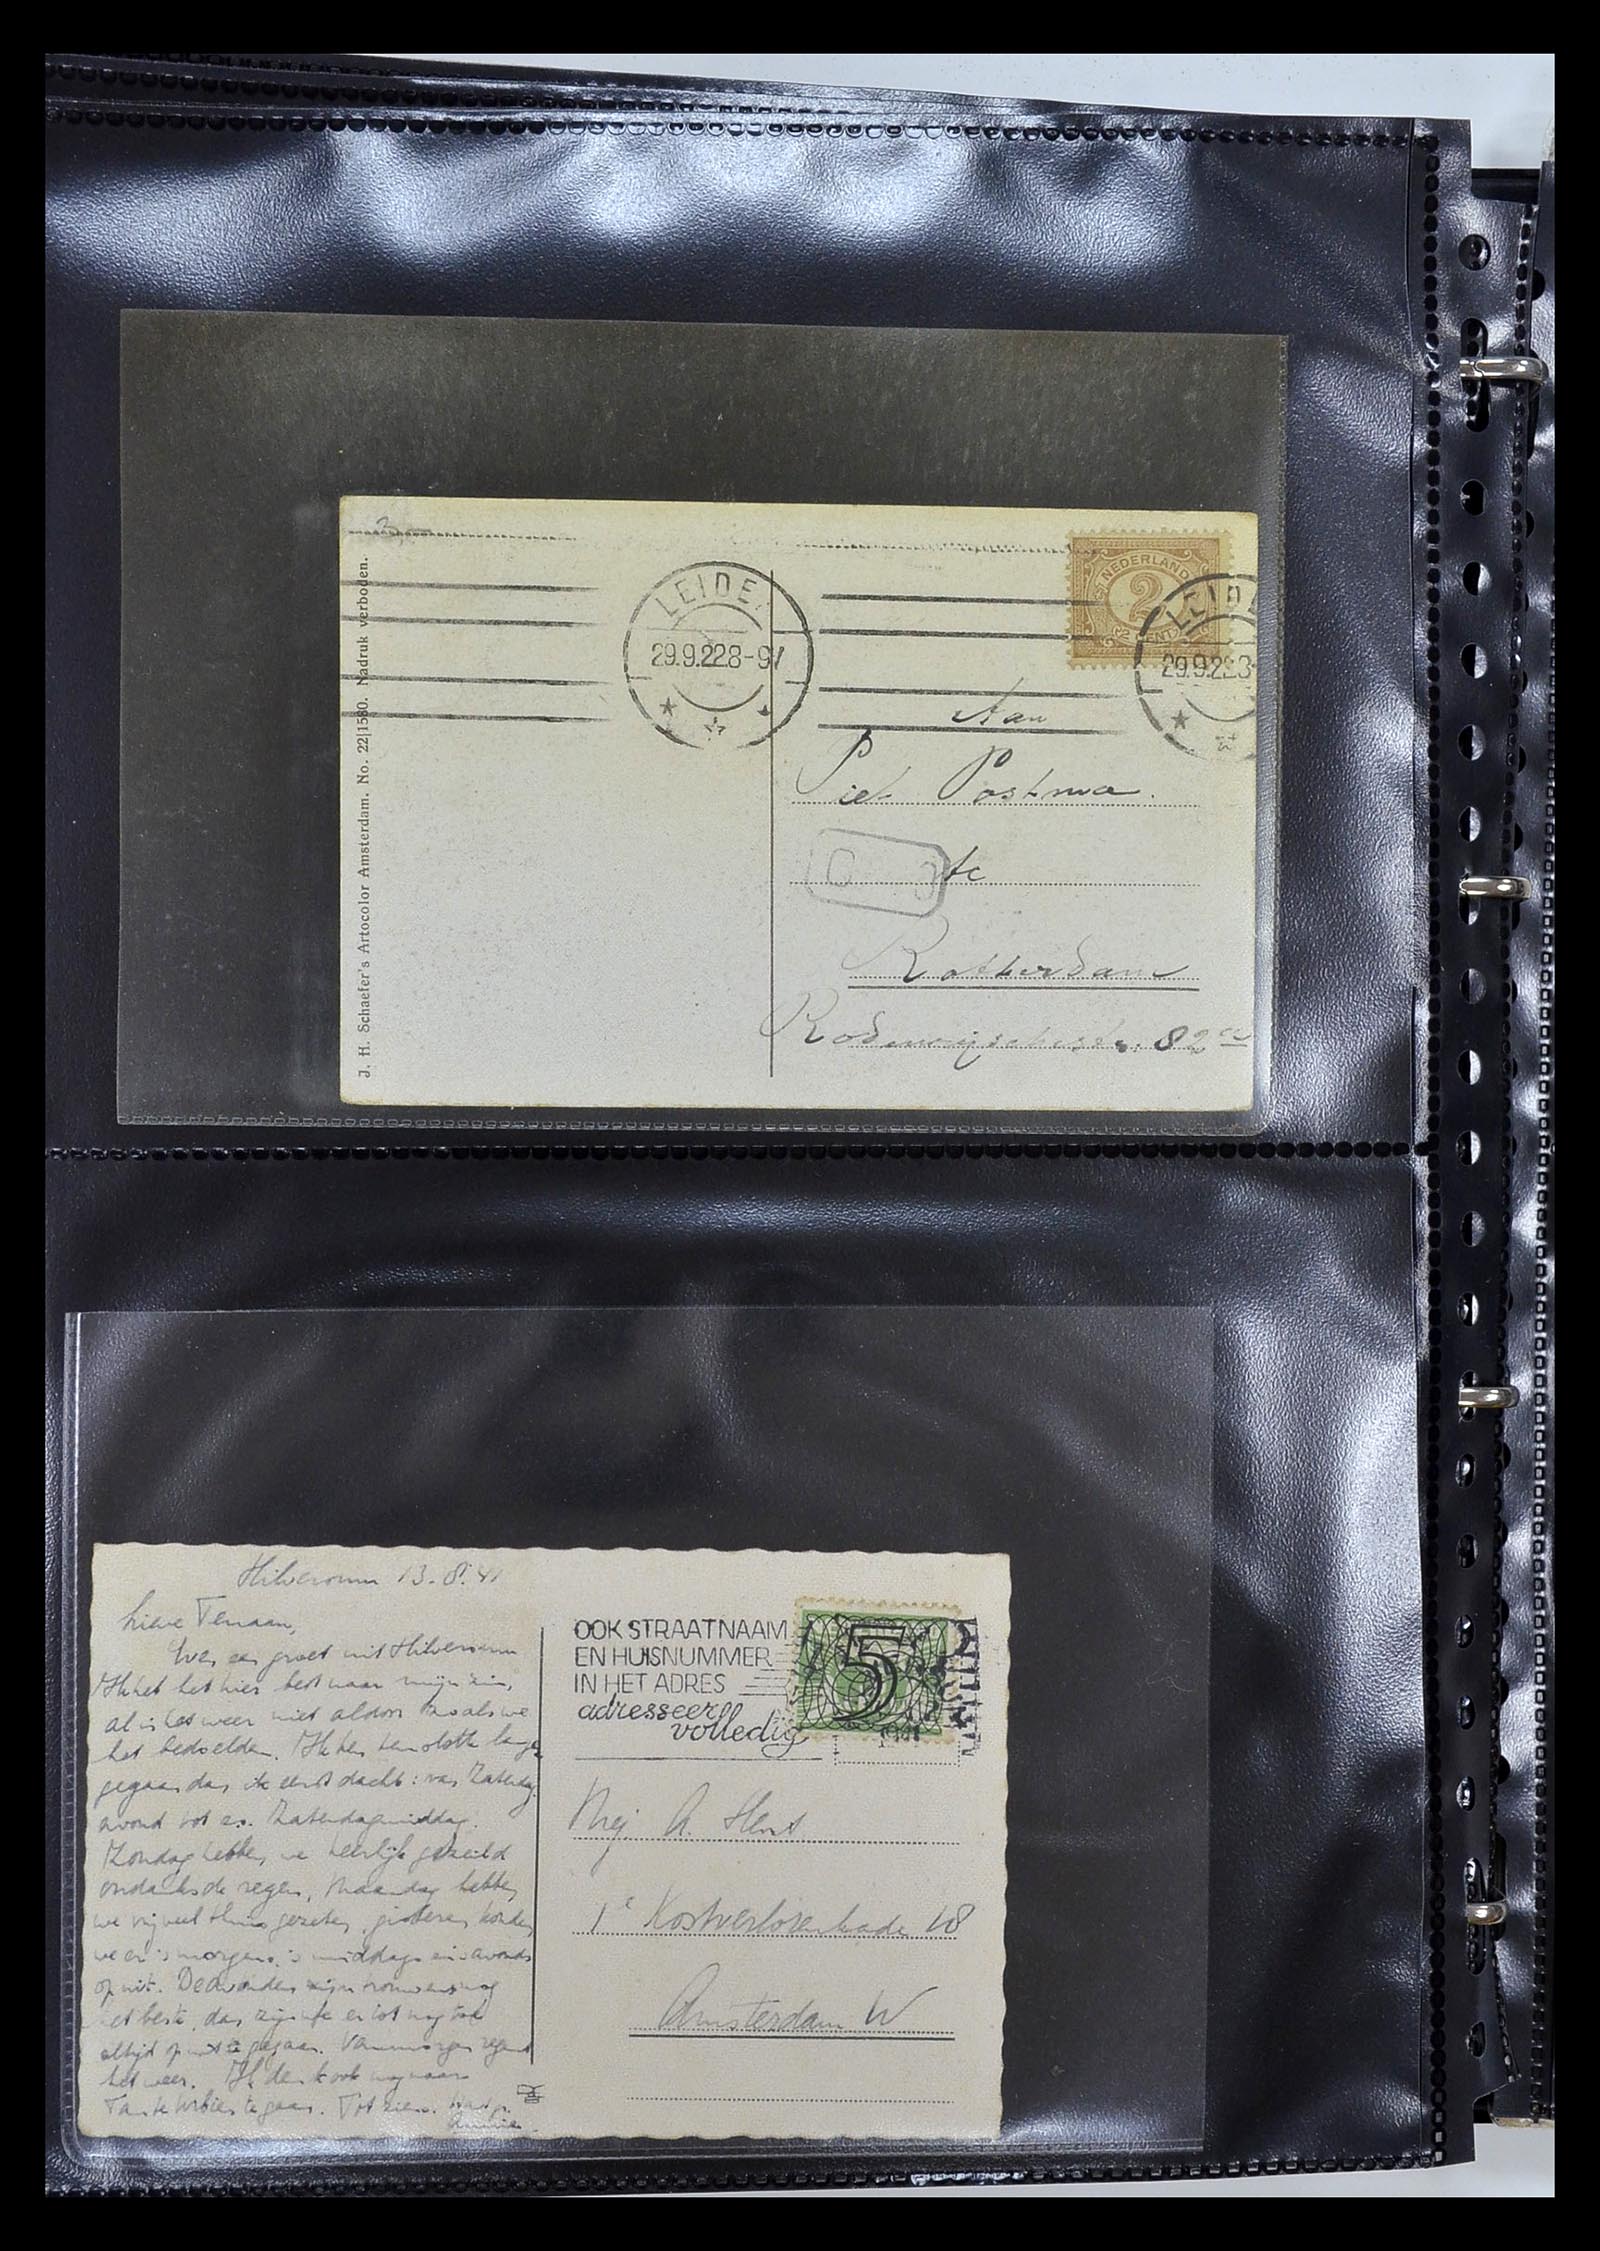 J. H. Schaefer's Artocolor Amsterdam. No. 22|1580. Nadruk verboden.
LEIDE
29.9.22.8-9V
NEDERLAND
2
CENT
LEIDE
29.9.22
Aan
Piet Postma.
te
Rotterdam
82
Hilversum 13.8.41
Lieve
een groet uit Hilversum
Ik heb het hier best naar mijn zin,
al is het weer niet zoals we
het bedoelden. Ik ben
gegaan dan ik eerst dacht: van Zaterdag
avond tot Zaterdagmiddag.
Zondag hebben we heerlijk gezeild
ondanks de regen, Maandag hebben
we vrijveel thuis gezeten, gisteren
we er 's morgens 's middags en 's avonds
op uit. De avonden zijn nog
het beste, dan zijn we er tot nog toe
altijd op uit gegaan. Vanmorgen regent
het weer. Ik denk ook nog naar
Tante te gaan. Tot ziens.
OOK STRAATNAAM
EN HUISNUMMER
IN HET ADRES
adresseer
volledig
5
1941
Mej. A.
1e Kostverlorenkade 48
Amsterdam W